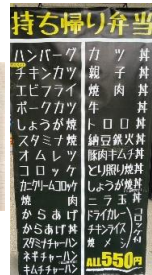 持ち帰り弁当
ハンバーグ
チキンカツ
エビフライ
ポークカツ
しょうが焼
スタミナ焼
オムレツ
コロッケ
カニクリームコロッケ
焼肉
からあげ
からあげ丼
スタミナチャーハン
ネギチャーハン
キムチチャーハン
カツ丼
親子丼
焼肉丼
牛丼
トロロ丼
納豆鉄火丼
豚肉キムチ丼
とり照り焼丼
しょうが焼丼
ニラ玉丼
ドライカレー
チキンライス
焼メシ
コロッケ付
ALL550円